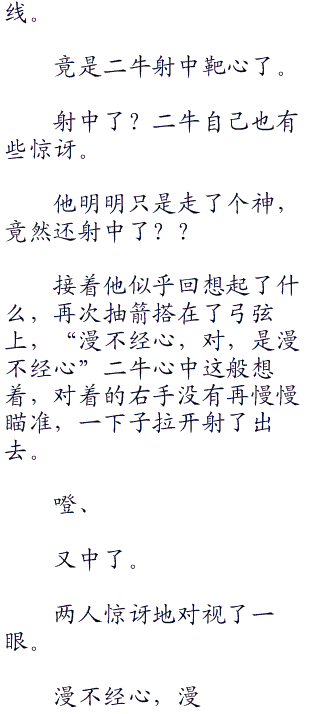 线。
竟是二牛射中靶心了。
射中了？二牛自己也有
些惊讶。
他明明只是走了个神，
竟然还射中了？？
接着他似乎回想起了什
么，再次抽箭搭在了弓弦
上，“漫不经心，对，是漫
不经心”二牛心中这般想
着，对着的右手没有再慢慢
瞄准，一下子拉开射了出
去。
噔、
又中了。
两人惊讶地对视了一
眼。
漫不经心，漫